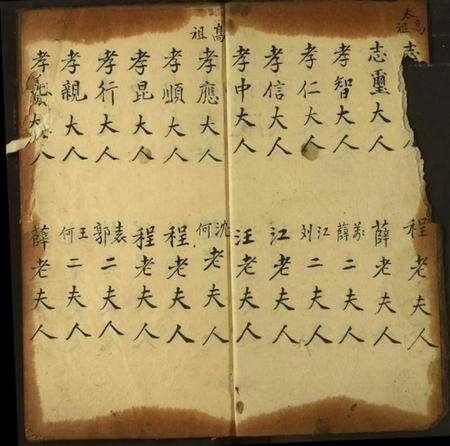 高太祖
志人 程老夫人
志璽大人 薛老夫人
孝智大人 萬薛二夫人
孝仁大人 江刘二夫人
孝信大人 江老夫人
孝中大人 汪老夫人
高祖
孝應大人 沈何老夫人
孝順大人 程老夫人
孝昆大人 程老夫人
孝行大人 袁郭二夫人
孝親大人 王何二夫人
孝大人 薛老夫人